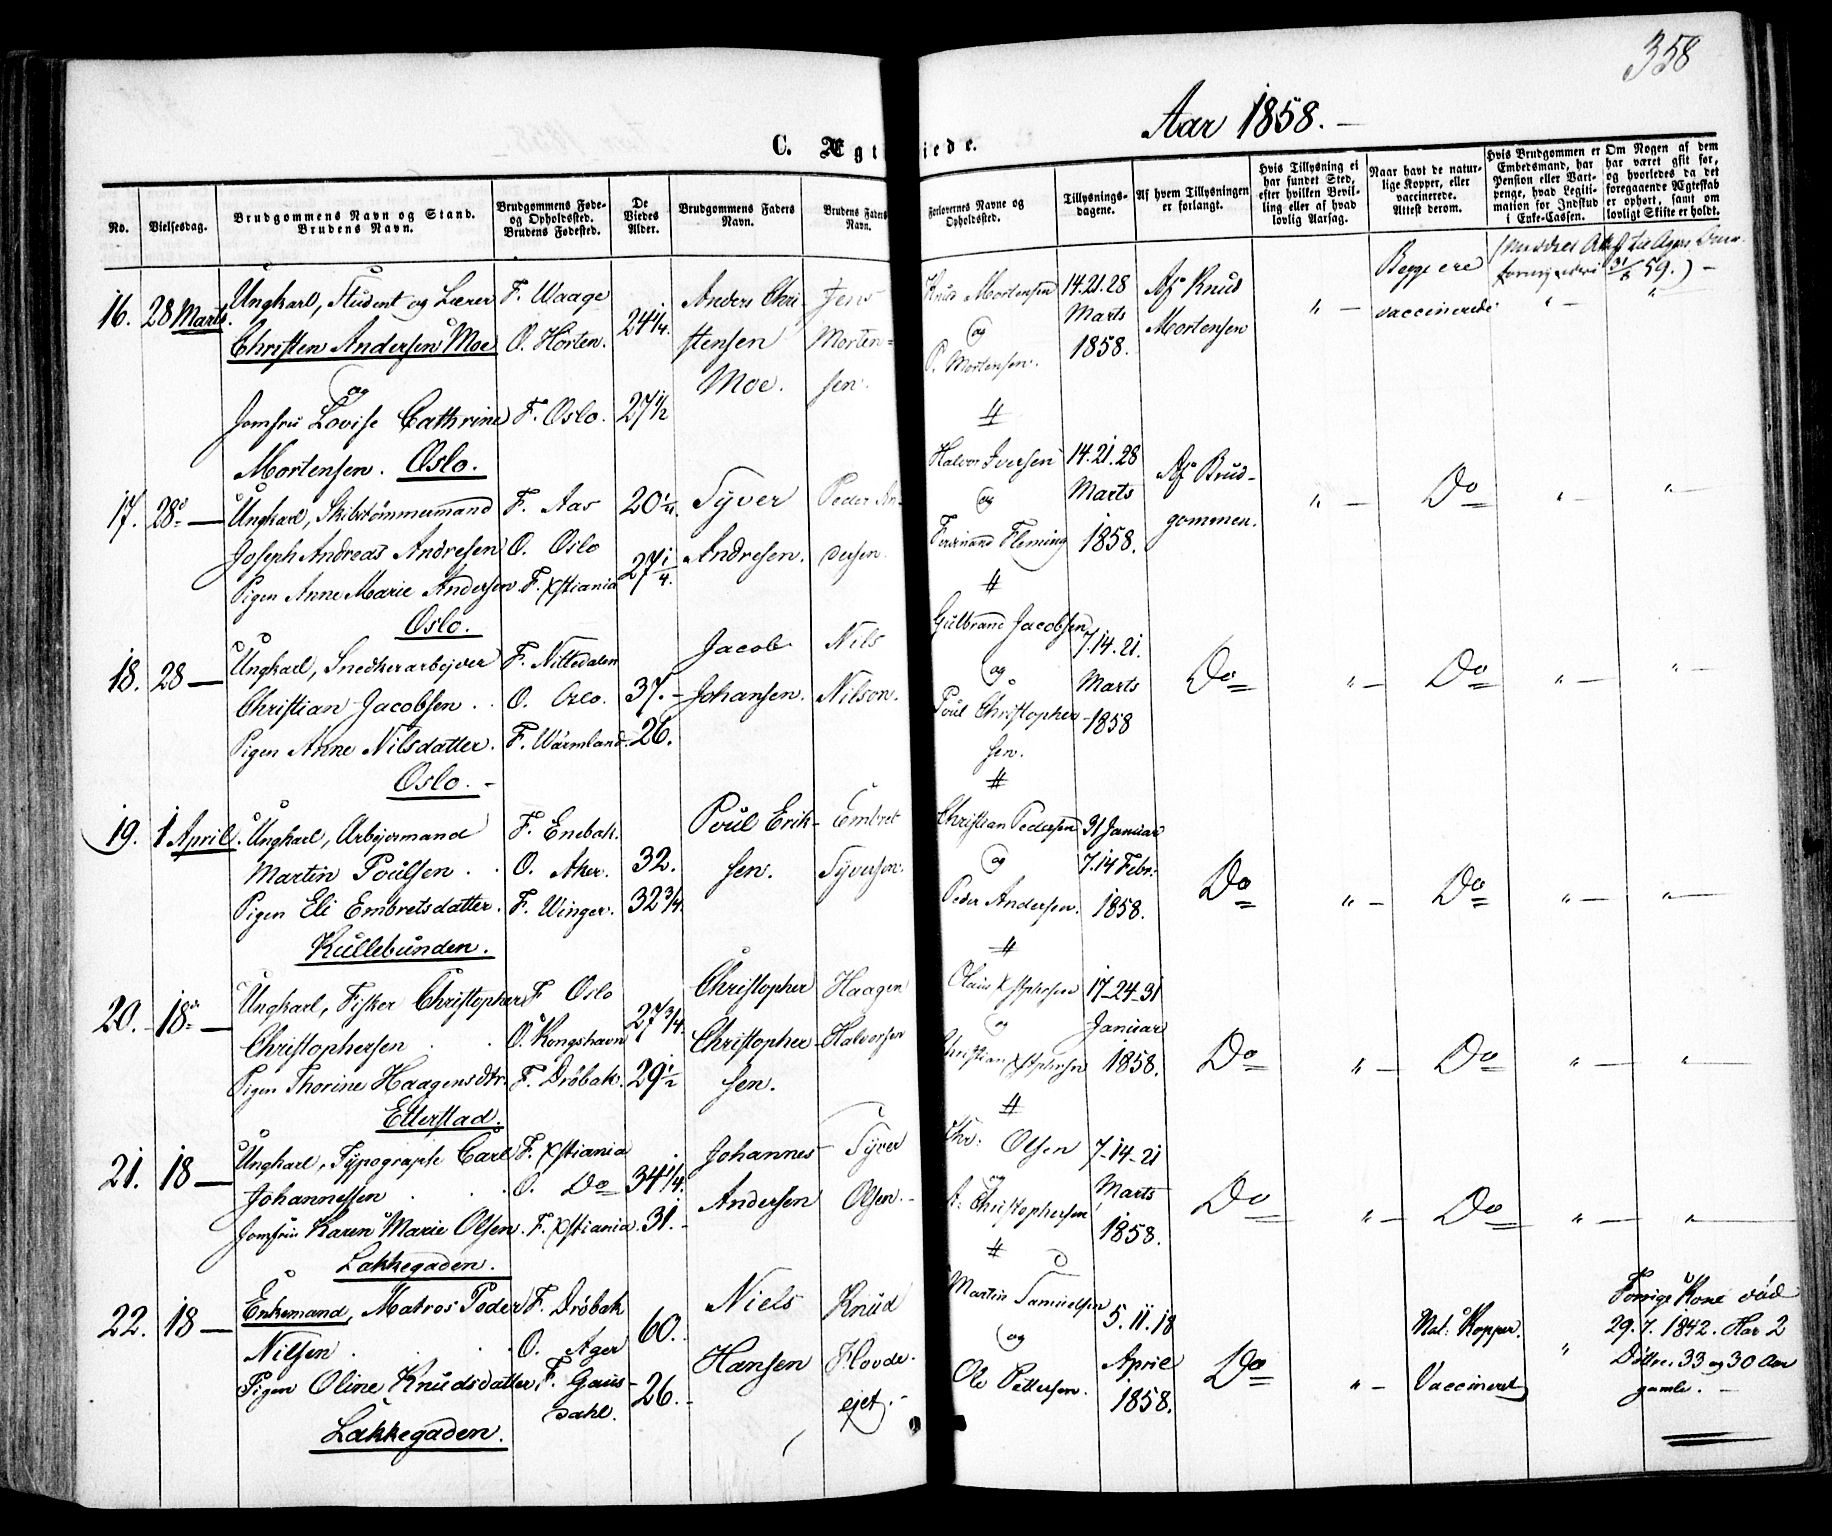 358
Aar 1858.
C. Ægt iede.
No.
Vielsesdag.
Brudgommens Navn og Stand.
Brudens Navn.
Brudgommens Føde-
og Opholdssted.
Brudens Fødested.
De
Viedes
Alder.
Brudgommens Faders
Navn.
Brudens Faders
Navn.
Forlovernes Navne og
Opholdssted.
Tillysnings-
dagene.
Af hvem Tillysningen
er forlangt.
Hvis Tillysning ei
har fundet Sted,
efter hvilken Bevil-
ling eller af hvad
lovlig Aarsag.
Naar havt de natur-
lige Kopper, eller
vaccinerede.
Attest derom.
Hvis Brudgommen er
Embedsmand, har
Pension eller Vart-
penge, hvad Legiti-
mation for Indskud
i Enke-Cassen.
Om Nogen af dem
har været gift for,
og hvorledes da det
foregaaende Ægteskab
er ophørt, samt om
lovligt Skifte er holdt.
16. 28 Marts.
Ungkarl, Student og Lærer
Christen Andersen Moe
og
Jomfru Lovise Cathrine
Mortensen. Oslo.
F. Waage
O. Horten.
F. Oslo.
24 1/4.
27 1/2
Anders Chri
stensen
Moe.
Jens
Morten-
sen.
Knud Mortensen
og
P. Mortensen.
14. 21. 28
Marts
1858.
Af Knud
Mortensen
" —
Begge ere
vaccinerede
" —
"
17. 28de —
Ungkarl, Skibstømmermand
Joseph Andreas Andresen
Pigen Anne Marie Andersen
Oslo.
F. Aas
O. Oslo
F. Xstiania
27 1/4.
Syver
Andresen.
Peder An-
dersen.
Halvor Iversen
og
Ferdinand Fleming
14. 21. 28
Marts
1858.
Af Brud-
gommen.
" —
Do
" —
" —
18. 28 —
Ungkarl, Snedkerarbejder
Christian Jacobsen .
Pigen Anne Nilsdatter.
Oslo. -
F. Nittedalen
O. Oslo.
F. Wärmland.
37. -
26.
Jacob
Johansen.
Nils
Nilson.
Gulbrand Jacobsen
og
Poul Christopher
sen.
7. 14. 21.
Marts
1858
Do
" —
Do
" —
" —
19. 1 April.
Ungkarl, Arbejdsmand
Martin Poulsen . .
Pigen Eli Embretsdatter.
Kullebunden.
F. Enebak.
O. Aker.
F. Winger.
32.
32 3/4.
Poul Erik-
sen.
Embret
Syversen.
Christian Pedersen
og
Peder Andersen.
31 Januar
7. 14 Febr.
1858.
Do
" —
Do
" —
" —
20. 18de —
Ungkarl, Fisker Christopher
Christophersen . .
Pigen Thorine Haagensdtr.
Etterstad.
F. Oslo
O. Kongshavn
F. Drøbak.
27 3/4.
29 1/2
Christopher
Christopher-
sen.
Haagen
Halvorsen
Olaus Xstophersen
og
Christian Xstophersen
17-24-31
Januar
1858.
Do
" —
Do
" —
" —
21. 18 —
Ungkarl, Typograph Carl
Johannessen . .
Jomfru Karen Marie Olsen.
Lakkegaden.
F. Xstiania
O. Do
F. Xstiania.
34 1/4.
31. -
Johannes
Andersen
Syver
Olsen. -
Chr: Olsen
og
A: Christophersen
7-14-21
Marts
1858.
Do
" —
Do
" —
" —
22. 18 —
Enkemand, Matros Peder
Nilsen . .
Pigen Oline Knudsdatter
Lakkegaden.
F. Drøbak
O. Ager
F. Gaus-
dahl.
60.
26.
Niels
Hansen
Knud
Flovde-
ejet. -
Martin Samuelsen
og
Ole Pettersen.
5. 11. 18
April
1858.
Do
" —
Nat: Kopper.
Vaccineret
"
Forrige Kone død
29. 7. 1842. Har 2
Døttre, 33 og 30 Aar
gamle. —